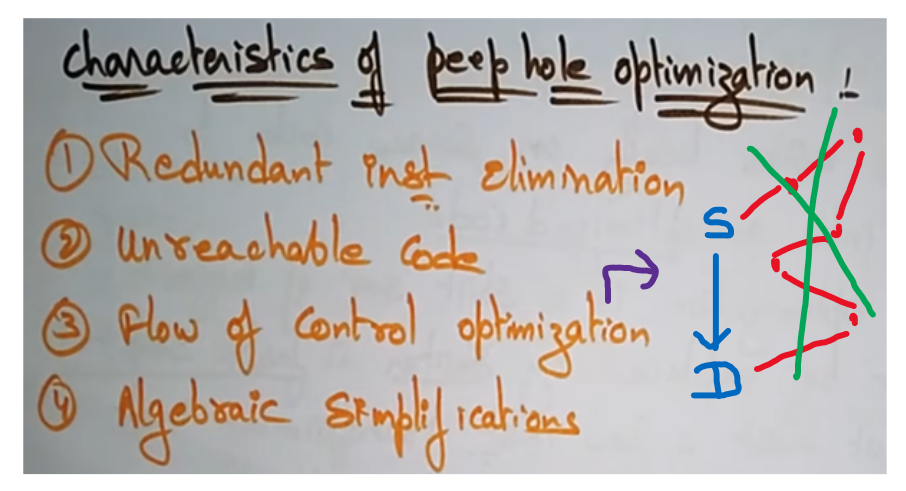 Characteristics of peep hole optimization !
① Redundant inst Elimination
② Unreachable Code
③ Flow of Control optimization
④ Algebraic Simplifications
S
D